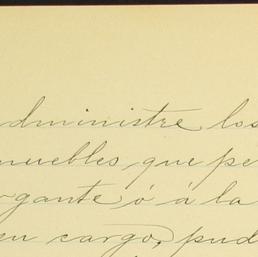 dministre los
muebles, que pe
rgante ó á la
en cargo, pud